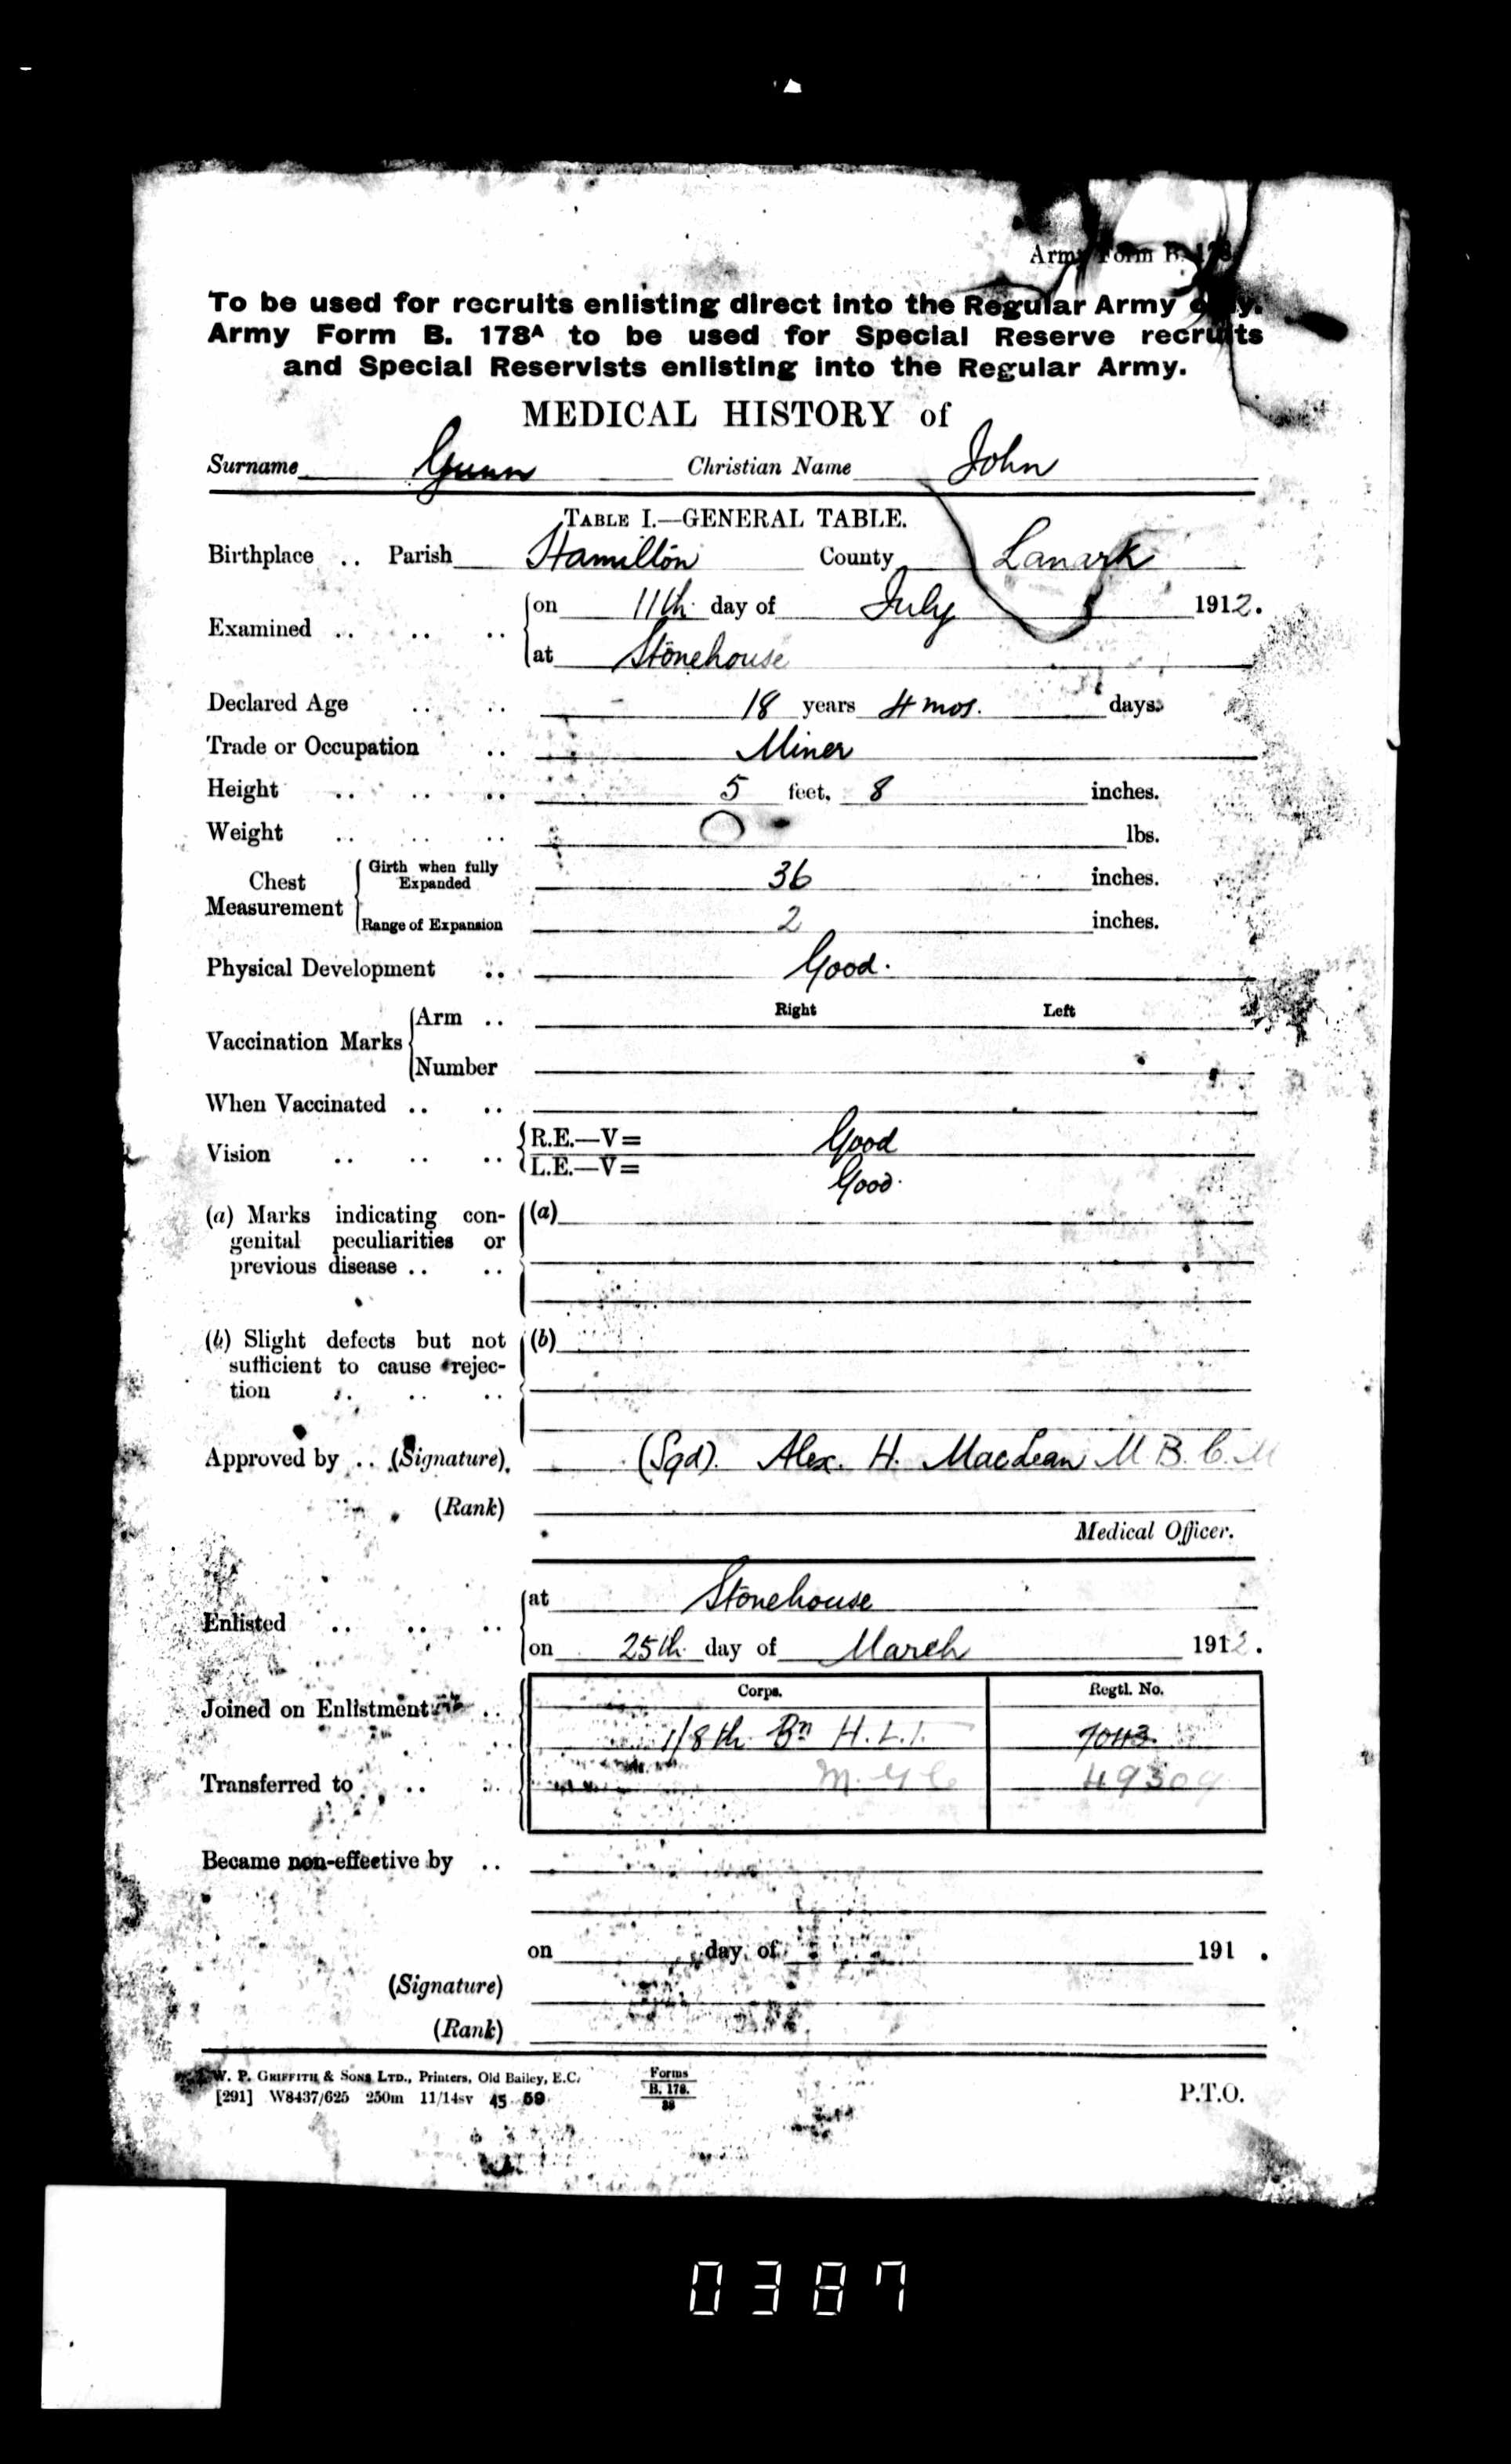 Army Form B. 178
To be used for recruits enlisting direct into the Regular Army only.
Army Form B. 178A to be used for Special Reserve recruits
and Special Reservists enlisting into the Regular Army.
MEDICAL HISTORY of
Surname Gunn Christian Name John
TABLE I.—GENERAL TABLE.
Birthplace .. Parish Hamilton County Lanark
Examined .. .. .. on 11th day of July 1912.
at Stonehouse
Declared Age .. .. 18 years 4 mos. days.
Trade or Occupation .. Miner
Height .. .. .. 5 feet, 8 inches.
Weight .. .. .. lbs.
Chest Measurement Girth when fully Expanded 36 inches.
Range of Expansion 2 inches.
Physical Development .. Good.
Right Left
Vaccination Marks Arm ..
Number
When Vaccinated .. ..
Vision .. .. .. R.E.—V= Good
L.E.—V= Good.
(a) Marks indicating con- (a)
genital peculiarities or
previous disease .. ..
(b) Slight defects but not (b)
sufficient to cause rejec-
tion .. .. ..
Approved by .. (Signature) (Sgd). Alex. H. MacLean M.B.C.M
(Rank)
Medical Officer.
Enlisted .. .. .. at Stonehouse
on 25th day of March 1912.
Corps. Regtl. No.
Joined on Enlistment .. 1/8th Bn H.L.I. 7043
Transferred to .. .. 49309
Became non-effective by ..
on day of 191 .
(Signature)
(Rank)
W. P. GRIFFITH & SONS LTD., Printers, Old Bailey, E.C.
[291] W8437/625 250m 11/14sv 45 59
Forms
B. 178.
38
P.T.O.
0387